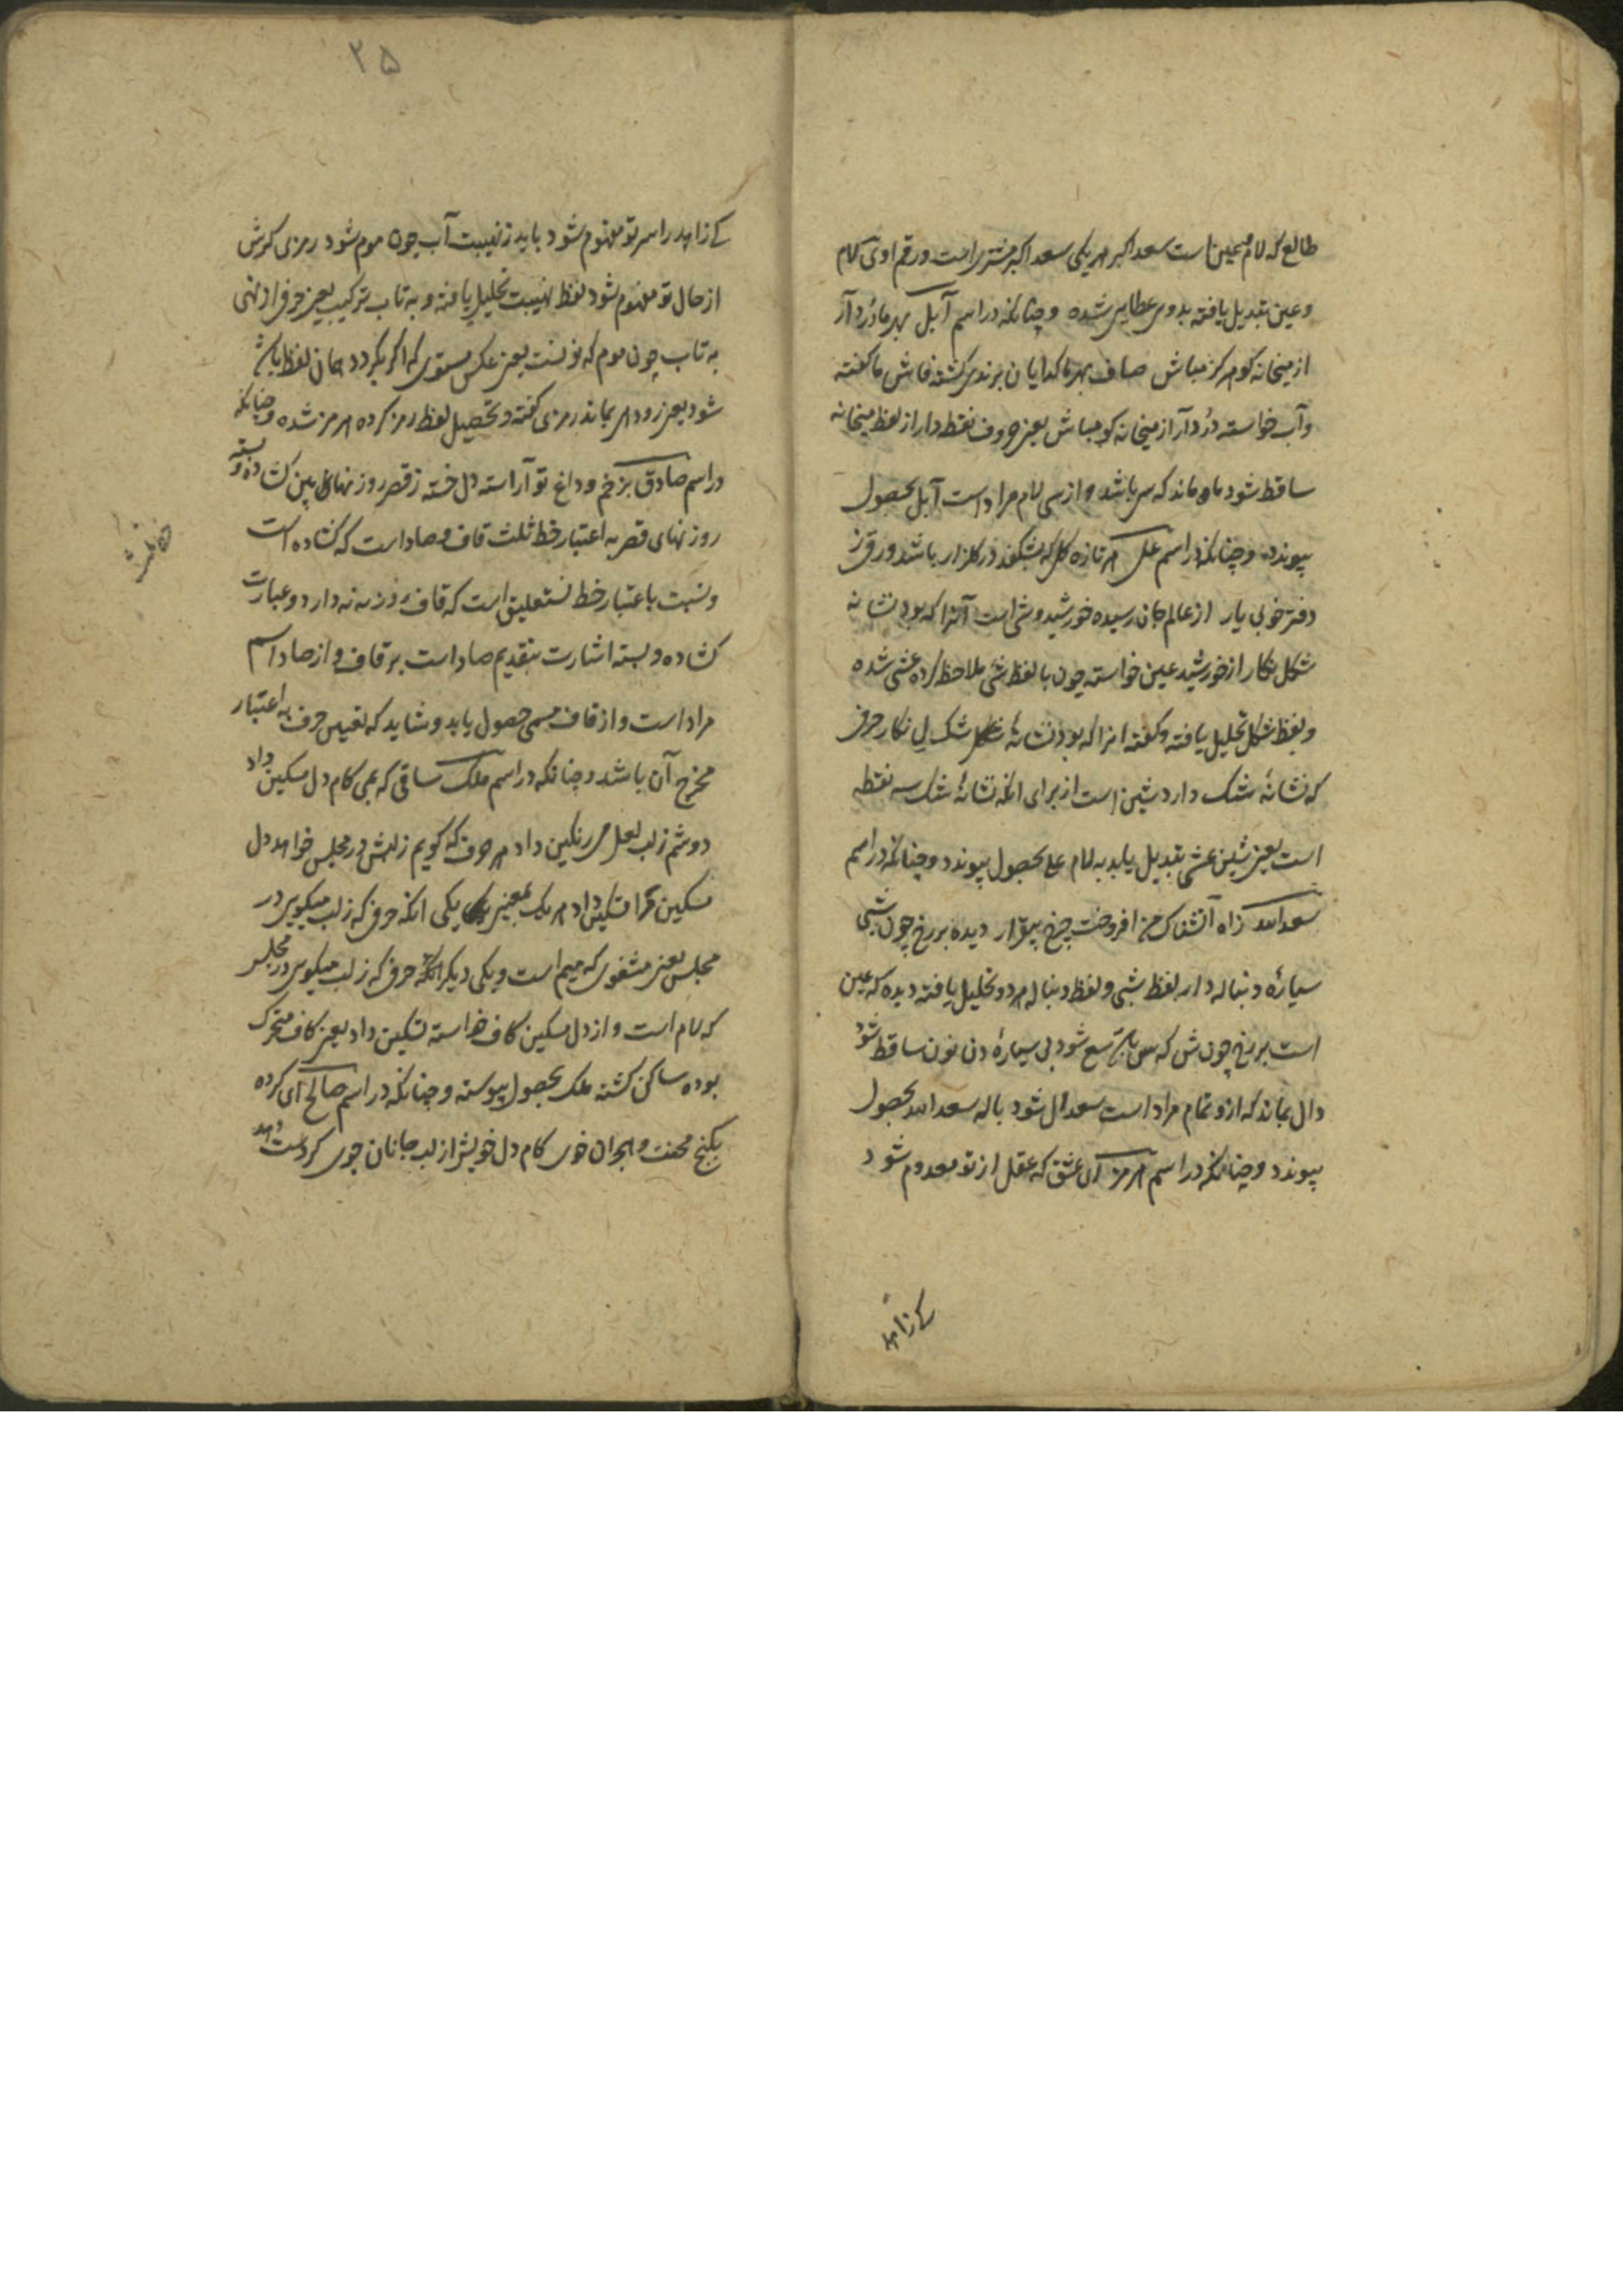 طالع که لام و عین است سعد اکبر هر یکی سعد اکبر مشتری است و رقم اوی که لام
و عین تبدیل یافته بدوی عطایی شده و چنانکه در اسم آبل بهر ما دُرد آر
از میخانه کو هرگز مباش صاف بهر ما گدایان برندی گشته فاش ما گفته
و آب خواسته دُرد آر از میخانه کو مباش یعنی حروف نقطه دار از لفظ میخانه
ساقط شود ماه ماند که سی باشد و از سی لام مراد است آبل بحصول
پیوندد و چنانکه در اسم علی هر تازه گل که بشکفد در گلزار باشد ورقی ز
دفتر خوبی یار از عالم جان رسیده خورشیدوشی است آنرا که بود نشانه
شکل نگار از خورشید عین خواسته چون با لفظ شی ملاحظه کرده عشی شده
و لفظ شکل تحلیل یافته و گفته انرا که بود نشانهٔ شک لِ نگار حرفی
که نشانهٔ شک دارد شین است از برای انکه نشانهٔ شک سه نقطه
است یعنی شین عشی تبدیل یابد به لام علی بحصول پیوندد و چنانکه در اسم
سعد الله ز آه آتشناک من افروخت چرخ بیقرار دیده بر رخ چون شبی
سیارهٔ دنباله دار لفظ شبی و لفظ دنباله هر دو تحلیل یافته دیده که عین
است بر رخ چون ش که س باشد سع شود بی سیارهٔ دن نون ساقط شود
دال بماند که ازو تمام مراد است سعد ال شود با له سعد الله بحصول
پیوندد و چنانکه در اسم هرمز ای عشق که عقل از تو معدوم شود
کی زاهد
۲۵
کی زاهد را سر تو مفهوم شود باید ز نهیبت آب چون موم شود رمزی گرش
از حال تو مفهوم شود لفظ نهیبت تحلیل یافته و به تاب ترکیب یعنی حرفی از نهی
به تاب چون موم که نونست یعنی عکس مستوی که اگر بگردد همان لفظ باشد
شود یعنی رود هی بماند رمزی گفته و تحصیل لفظ رمز کرده هرمز شده و چنانکه
در اسم صادق بزخم و داغ تو آراسته دل خسته ز قصر روزنهای بین گشاده و بسته
روزنهای قصر به اعتبار خط ثلث قاف و صاد است که گشاده است
و نسبت باعتبار خط نستعلیق است که قاف روزنه ندارد و عبارت
گشاده و بسته اشارت بتقدیم صاد است بر قاف و از صاد اسم
مراد است و از قاف مسمی حصول یابد و شاید که تعیین حرف به اعتبار
مخرج آن باشد چنانکه در اسم ملک ساقی که بمی کام دل مسکین داد
دوشم ز لب لعل می رنگین داد هر حرف که گویم ز لبش در مجلس خواهد دل
مسکین مرا تسکین داد هر یک بمعنی یکی انکه حرفی که ز لب میگویی در
مجلس یعنی مشفوی که میم است و یکی دیگر انکه حرفی که ز لب میگویی در مجلس
که لام است و از دل مسکین کاف خواسته تسکین داد یعنی کاف متحرک
بوده ساکن گشته ملک بحصول پیوسته و چنانکه در اسم صالح ای کرده
بکنج محنت و هجران خوی کام دل خویش از لب جانان جوی گر دست دهد